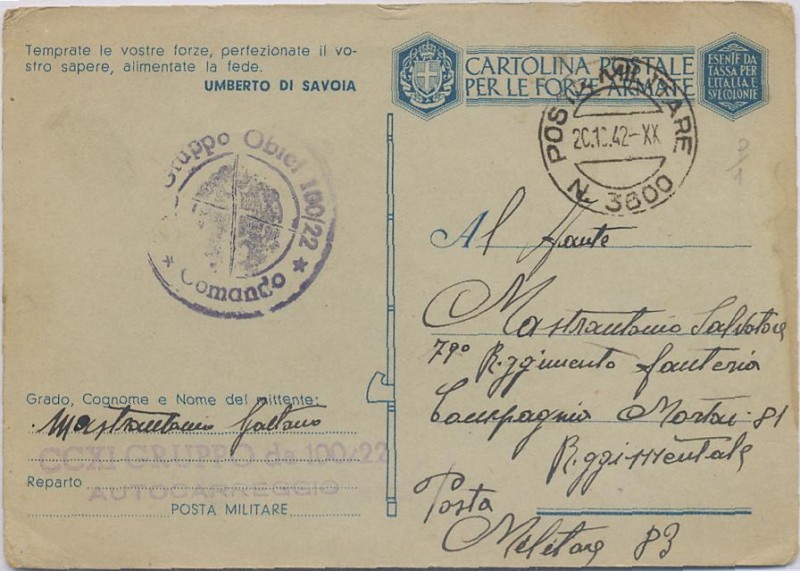 Temprate le vostre forze, perfezionate il vo-
stro sapere, alimentate la fede.
UMBERTO DI SAVOIA
CARTOLINA POSTALE
PER LE FORZE ARMATE
ESENTE DA
TASSA PER
L'ITALIA E
SVE COLONIE
POSTA MILITARE
20.10.42-XX
N. 3600
Gruppo Obici 100/22
Comando
Al fante
Mastrantonio Salvatore
79° Reggimento fanteria
Compagnia Mortai 81
Reggimentale
Posta
Militare 83
Grado, Cognome e Nome del mittente:
Mastrantonio Gaetano
CCXI GRUPPO da 100/22
Reparto
AUTOCARREGGIO
POSTA MILITARE